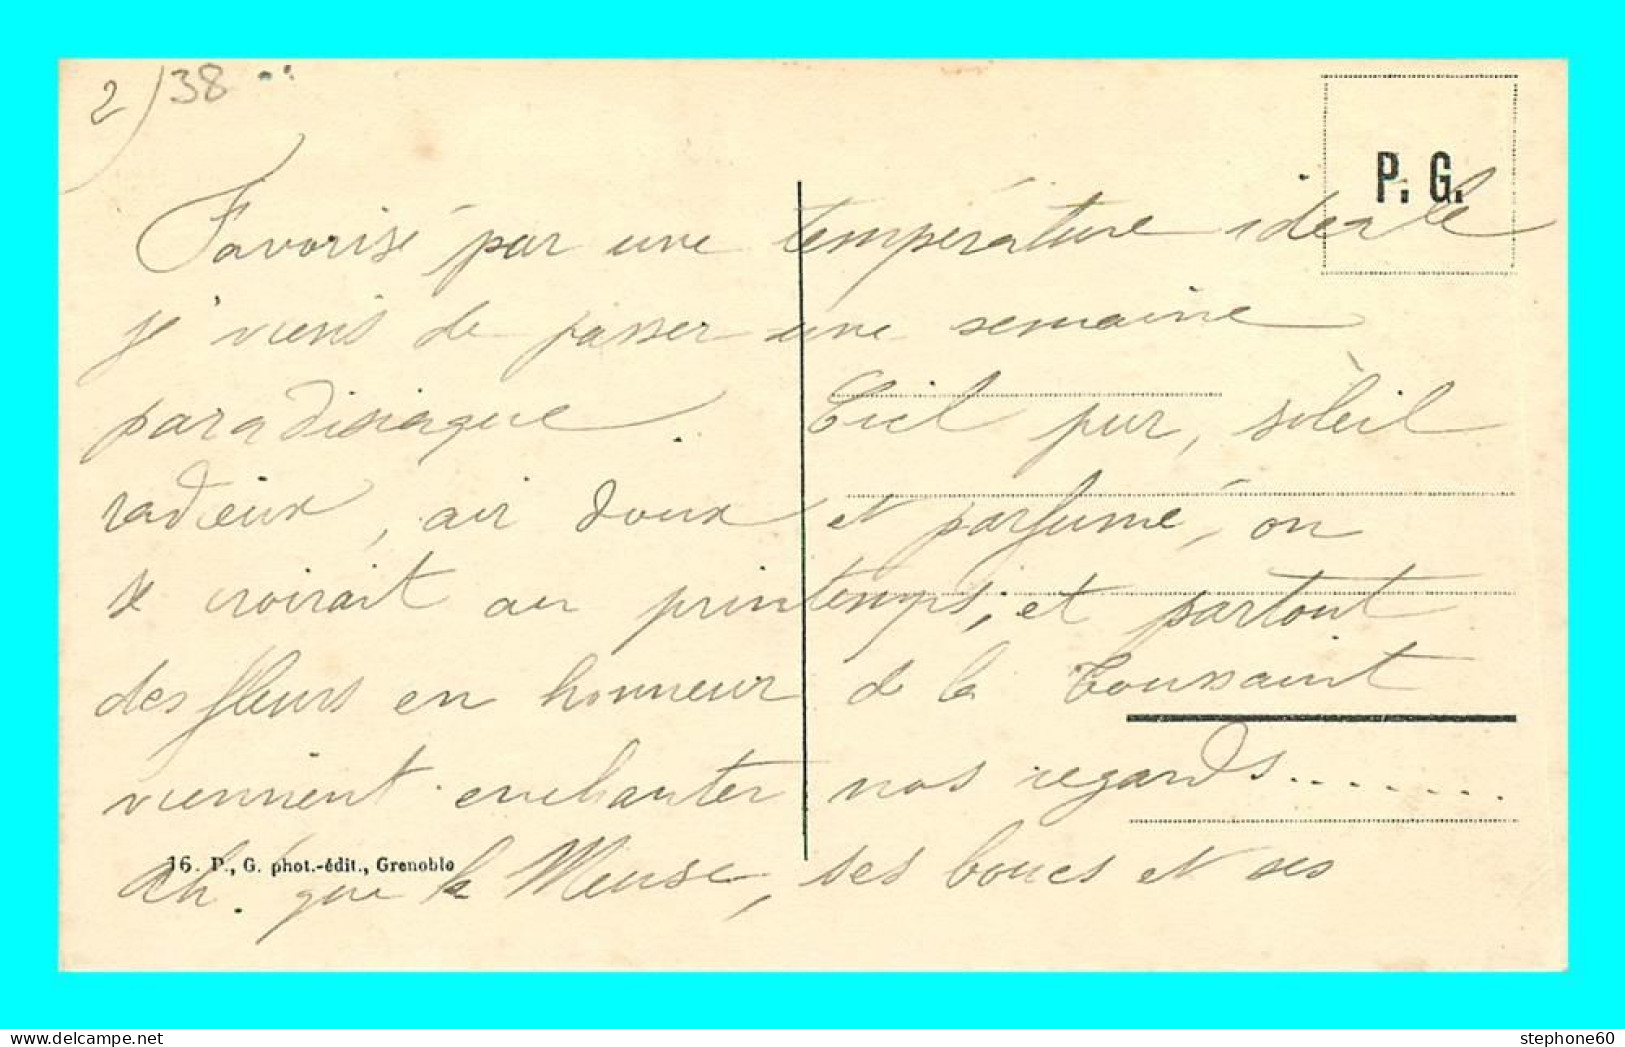 2) 38
P. G.
Favorisé par une température idéale
je viens de passer une semaine
paradisiaque. Ciel pur, soleil
radieux, air doux et parfumé, on
se croirait au printemps, et partout
des fleurs en honneur de la Toussaint
viennent enchanter nos regards........
16. P., G. phot.-édit., Grenoble
Ah! que la Meuse, ses boues et ses
stephone60